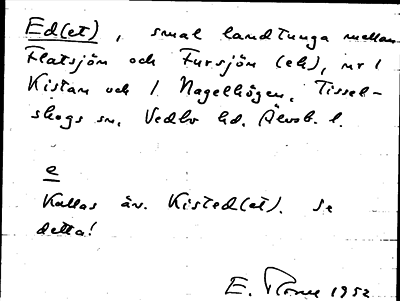 Ed(et), smal landtunga mellan
Flatsjön och Fursjön (ek), nr 1
Kistan och 1 Nagelhögen, Tissel-
skogs sn. Vedbo hd. Älvsb. l.
e
Kallas äv. Kisted(et). Se
detta!
E. 1952